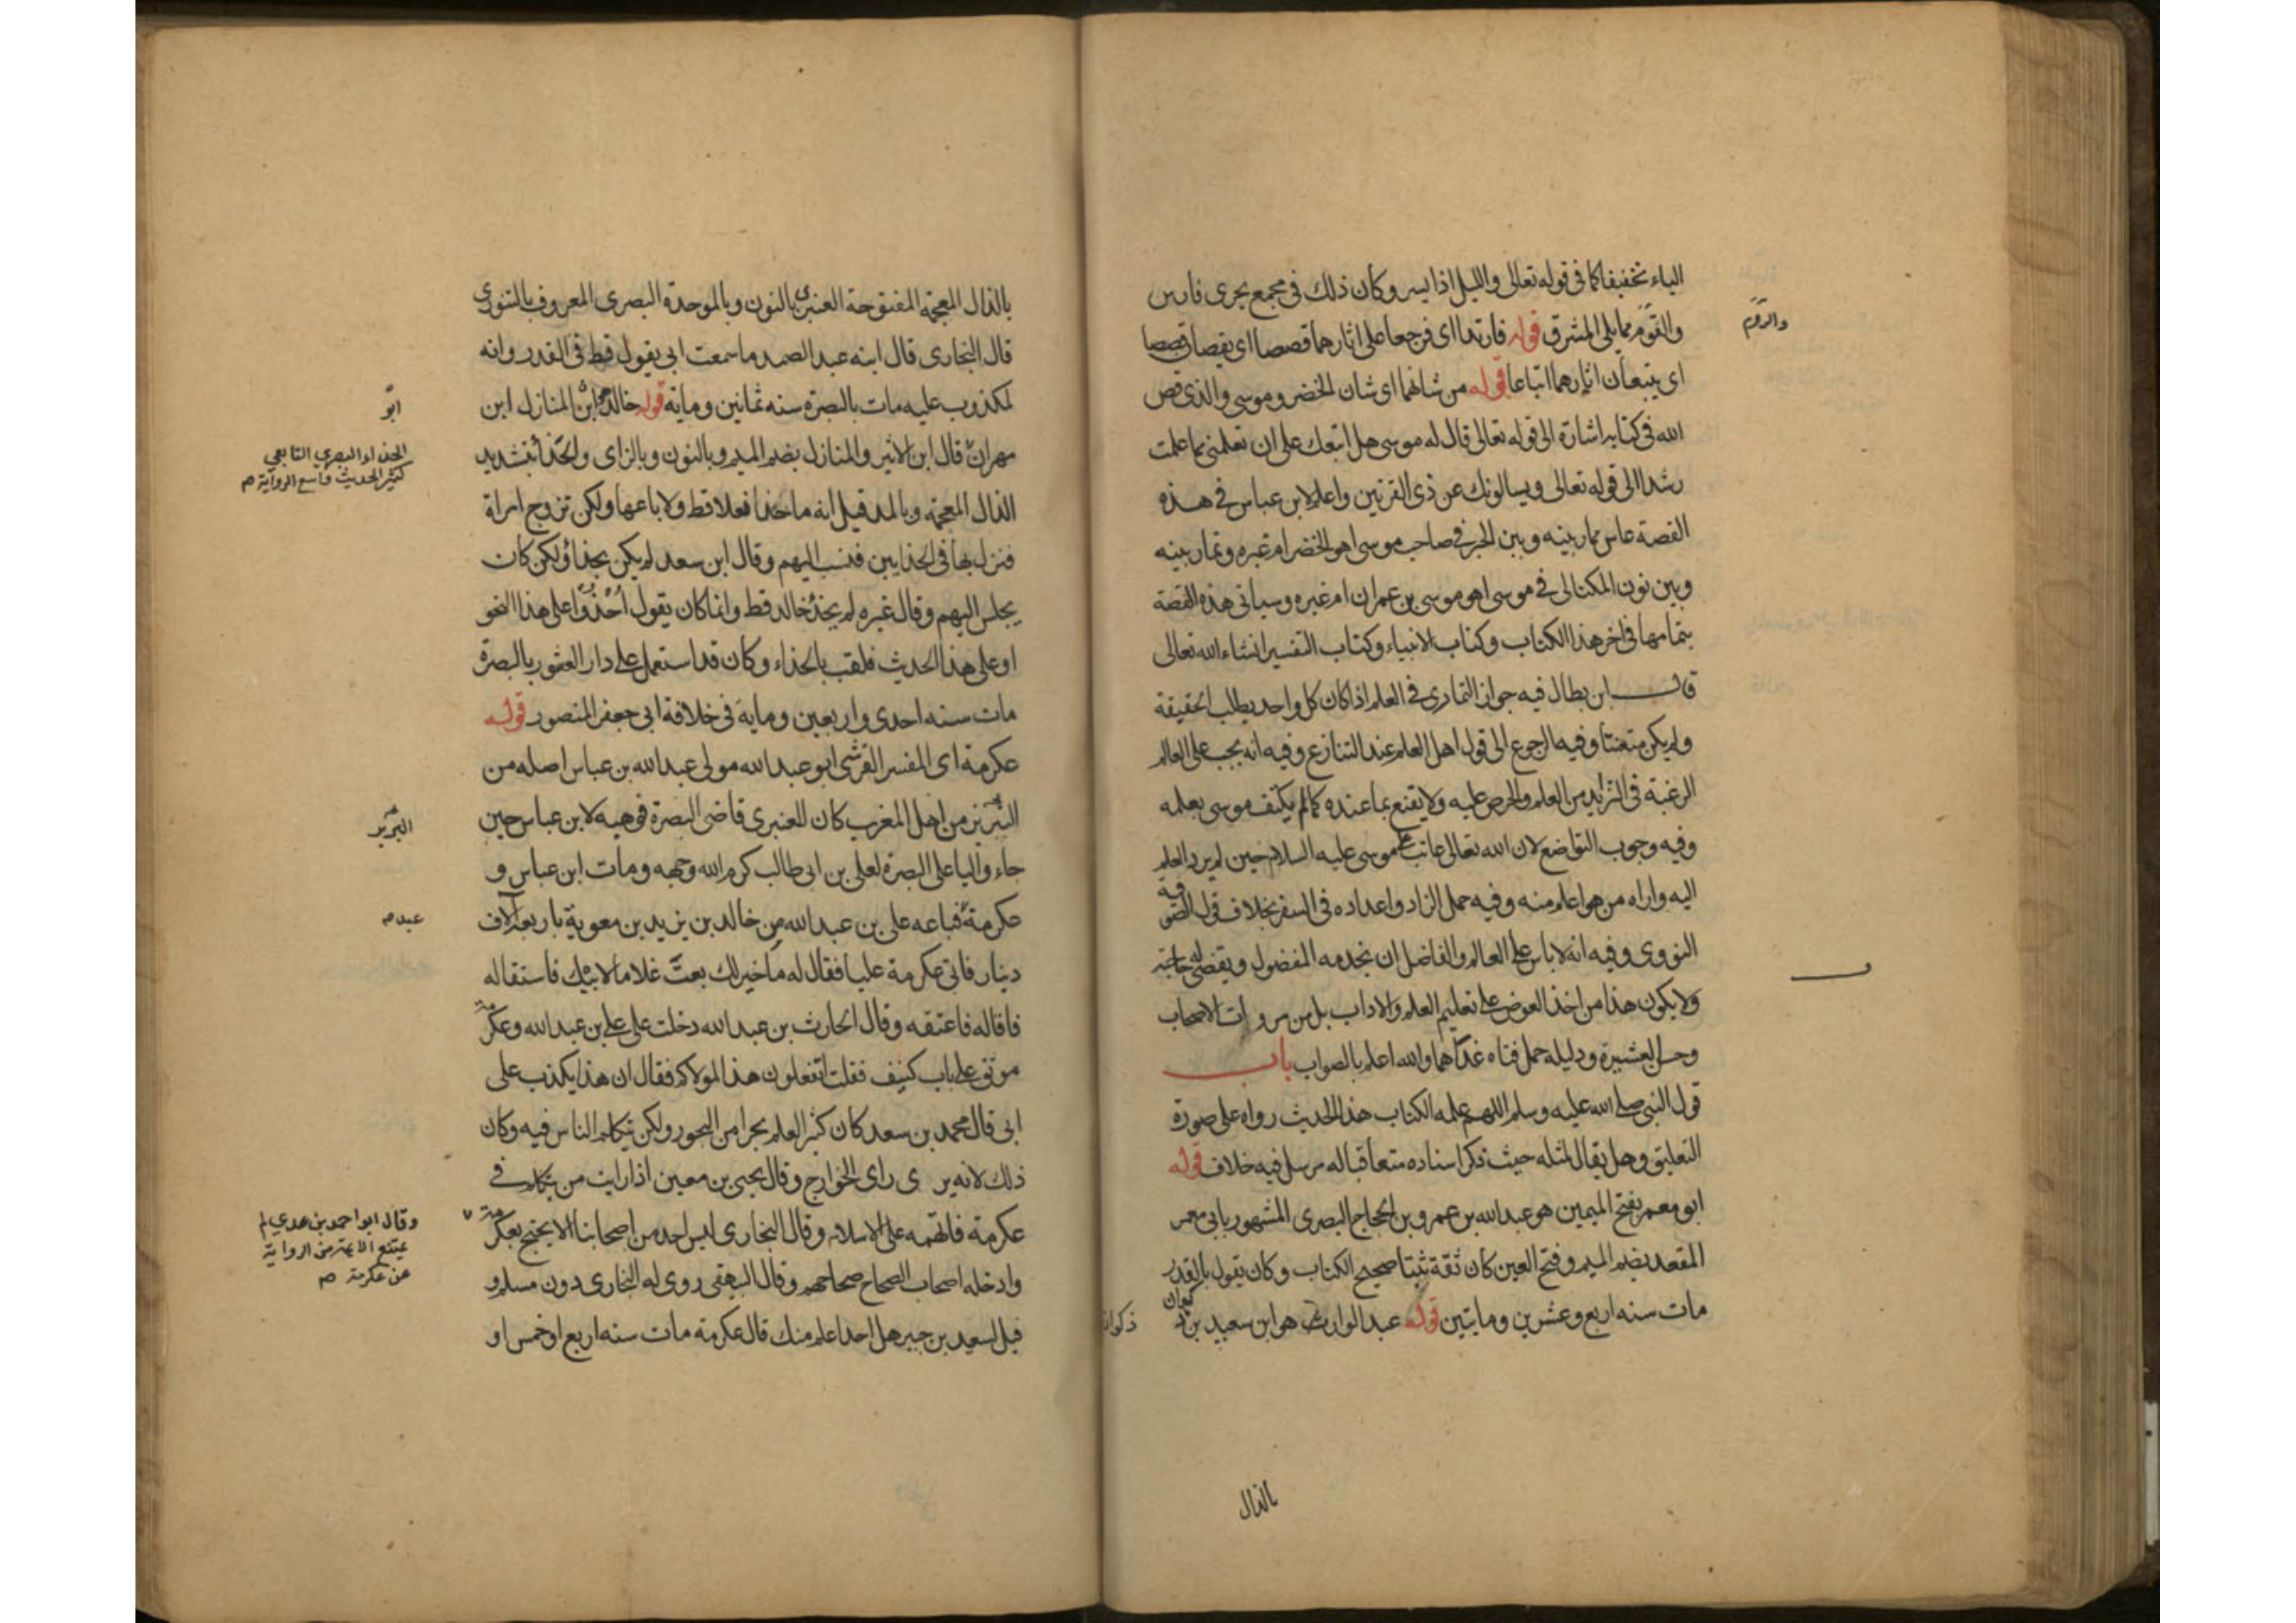 الياء تخفيفا كما فى قوله تعالى والليل اذا يسر وكان ذلك فى مجمع بحرى فارس
والروم
مما يلى المشرق قوله فارتدا اى فرجعا على اثارهما قصصا اى يقصان قصصا
اى يتبعان اثارهما اتباعا قوله من شانهما اى شان الخضر وموسى والذى قص
الله فى كتابه اشارة الى قوله تعالى قال له موسى هل اتبعك على ان تعلمنى مما علمت
رشدا الى قوله تعالى ويسالونك عن ذى القرنين واعلم لابن عباس فى هذه
القصة عاس مماربينه وبين الحر فى صاحب موسى اهو الخضر ام غيره وتماربينه
وبين نون المكتالى فى موسى اهو موسى بن عمران ام غيره وسياتى هذه القصة
بتمامها فى اخر هذا الكتاب وكتاب الانبياء وكتاب التفسير انشاء الله تعالى
قال ابن بطال فيه جواز التمارى فى العلم اذا كان كل واحد يطلب الحقيقة
ولم يكن متعنتا وفيه الرجوع الى قول اهل العلم عند التنازع وفيه انه يجب على العالم
الرغبة فى التزايد من العلم والحرص عليه ولا يقنع بما عنده كما لم يكتف موسى بعلمه
وفيه وجوب التواضع لان الله تعالى عاتب موسى عليه السلام حين لم يرد العلم
اليه واراه من هو اعلم منه وفيه حمل الزاد واعداده فى السفر بخلاف قول الصوفية
النووى وفيه انه لا باس على العالم والفاضل ان يخدمه المفضول ويقضى له حاجته
ولا يكون هذا من اخذ العوض على تعليم العلم والاداب بل من مروات الاصحاب
وحسن العشيرة ودليله حمل فتاه غداهما والله اعلم بالصواب باب
قول النبى صلى الله عليه وسلم اللهم علمه الكتاب هذا الحديث رواه على صورة
التعليق وهل يقال لمثله حيث ذكر اسناده متعاقبا له مرسل فيه خلاف قوله
ابو معمر بفتح الميمين هو عبد الله بن عمرو بن الحجاج البصرى المشهور بابى معمر
المقعد بضم الميم وفتح العين كان ثقة ثبتا صحيح الكتاب وكان يقول بالقدر
مات سنه اربع وعشرين ومايتين قوله عبد الوارث هو ابن سعيد بن ذكوان
ذكوان
بالذال
بالذال المعجمة المفتوحة العنبرى بالنون وبالموحدة البصرى المعروف بالتنورى
قال البخارى قال ابنه عبد الصمد ما سمعت ابى يقول قط فى القدر وانه
لمكذوب عليه مات بالبصرة سنه ثمانين وماية قوله خالد هو ابن المنازل ابن
ابو
مهران قال ابن الاثير والمنازل بضم الميم وبالنون وبالزاى والحذا بتشديد
الحذاء البصري التابعي
كثير الحديث واسع الرواية
الذال المعجمة وبالمد قيل انه ما حذا فعلا قط ولا باعها ولكن تزوج امراة
فنزل بها فى الحذايين فنسب اليهم وقال ابن سعد لم يكن بحذاء ولكن كان
يجلس اليهم وقال غيره لم يحذ خالد قط وانما كان يقول احذوا على هذا النحو
او على هذا الحديث فلقب بالحذاء وكان قد استعمل على دار العشور بالبصرة
مات سنه احدى واربعين وماية فى خلافة ابى جعفر المنصور قوله
عكرمة اى المفسر القرشى ابو عبد الله مولى عبد الله بن عباس اصله من
البربر من اهل المغرب كان للعنبرى قاضى البصرة فوهبه لابن عباس حين
البربر
جاء واليا على البصرة لعلى بن ابى طالب كرم الله وجهه ومات ابن عباس و
عكرمة فباعه على بن عبد الله من خالد بن يزيد بن معوية باربعة آلاف
عبد
دينار فاتى عكرمة عليا فقال له ما خير لك بعت غلاما لابيك فاستقاله
فاقاله فاعتقه وقال الحارث بن عبد الله دخلت على على بن عبد الله وعكرمة
موثق على باب كنيف فقلت اتفعلون هذا المولاكم فقال ان هذا يكذب على
ابى قال محمد بن سعد كان كثير العلم بحرا من البحور ولكن يتكلم الناس فيه وكان
ذلك لانه يرى راى الخوارج وقال يحيى بن معين اذا رايت من يتكلم فى
عكرمة فاتهمه على الاسلام وقال البخارى ليس احد من اصحابنا الا يحتج بعكرمة
وقال ابو احمد بن عدي لم
يمتنع الائمة من الرواية
عن عكرمة
وادخله اصحاب الصحاح صحاحهم وقال البيهقى روى له البخارى دون مسلم و
قيل لسعيد بن جبير هل احدا اعلم منك قال عكرمة مات سنه اربع او خمس او